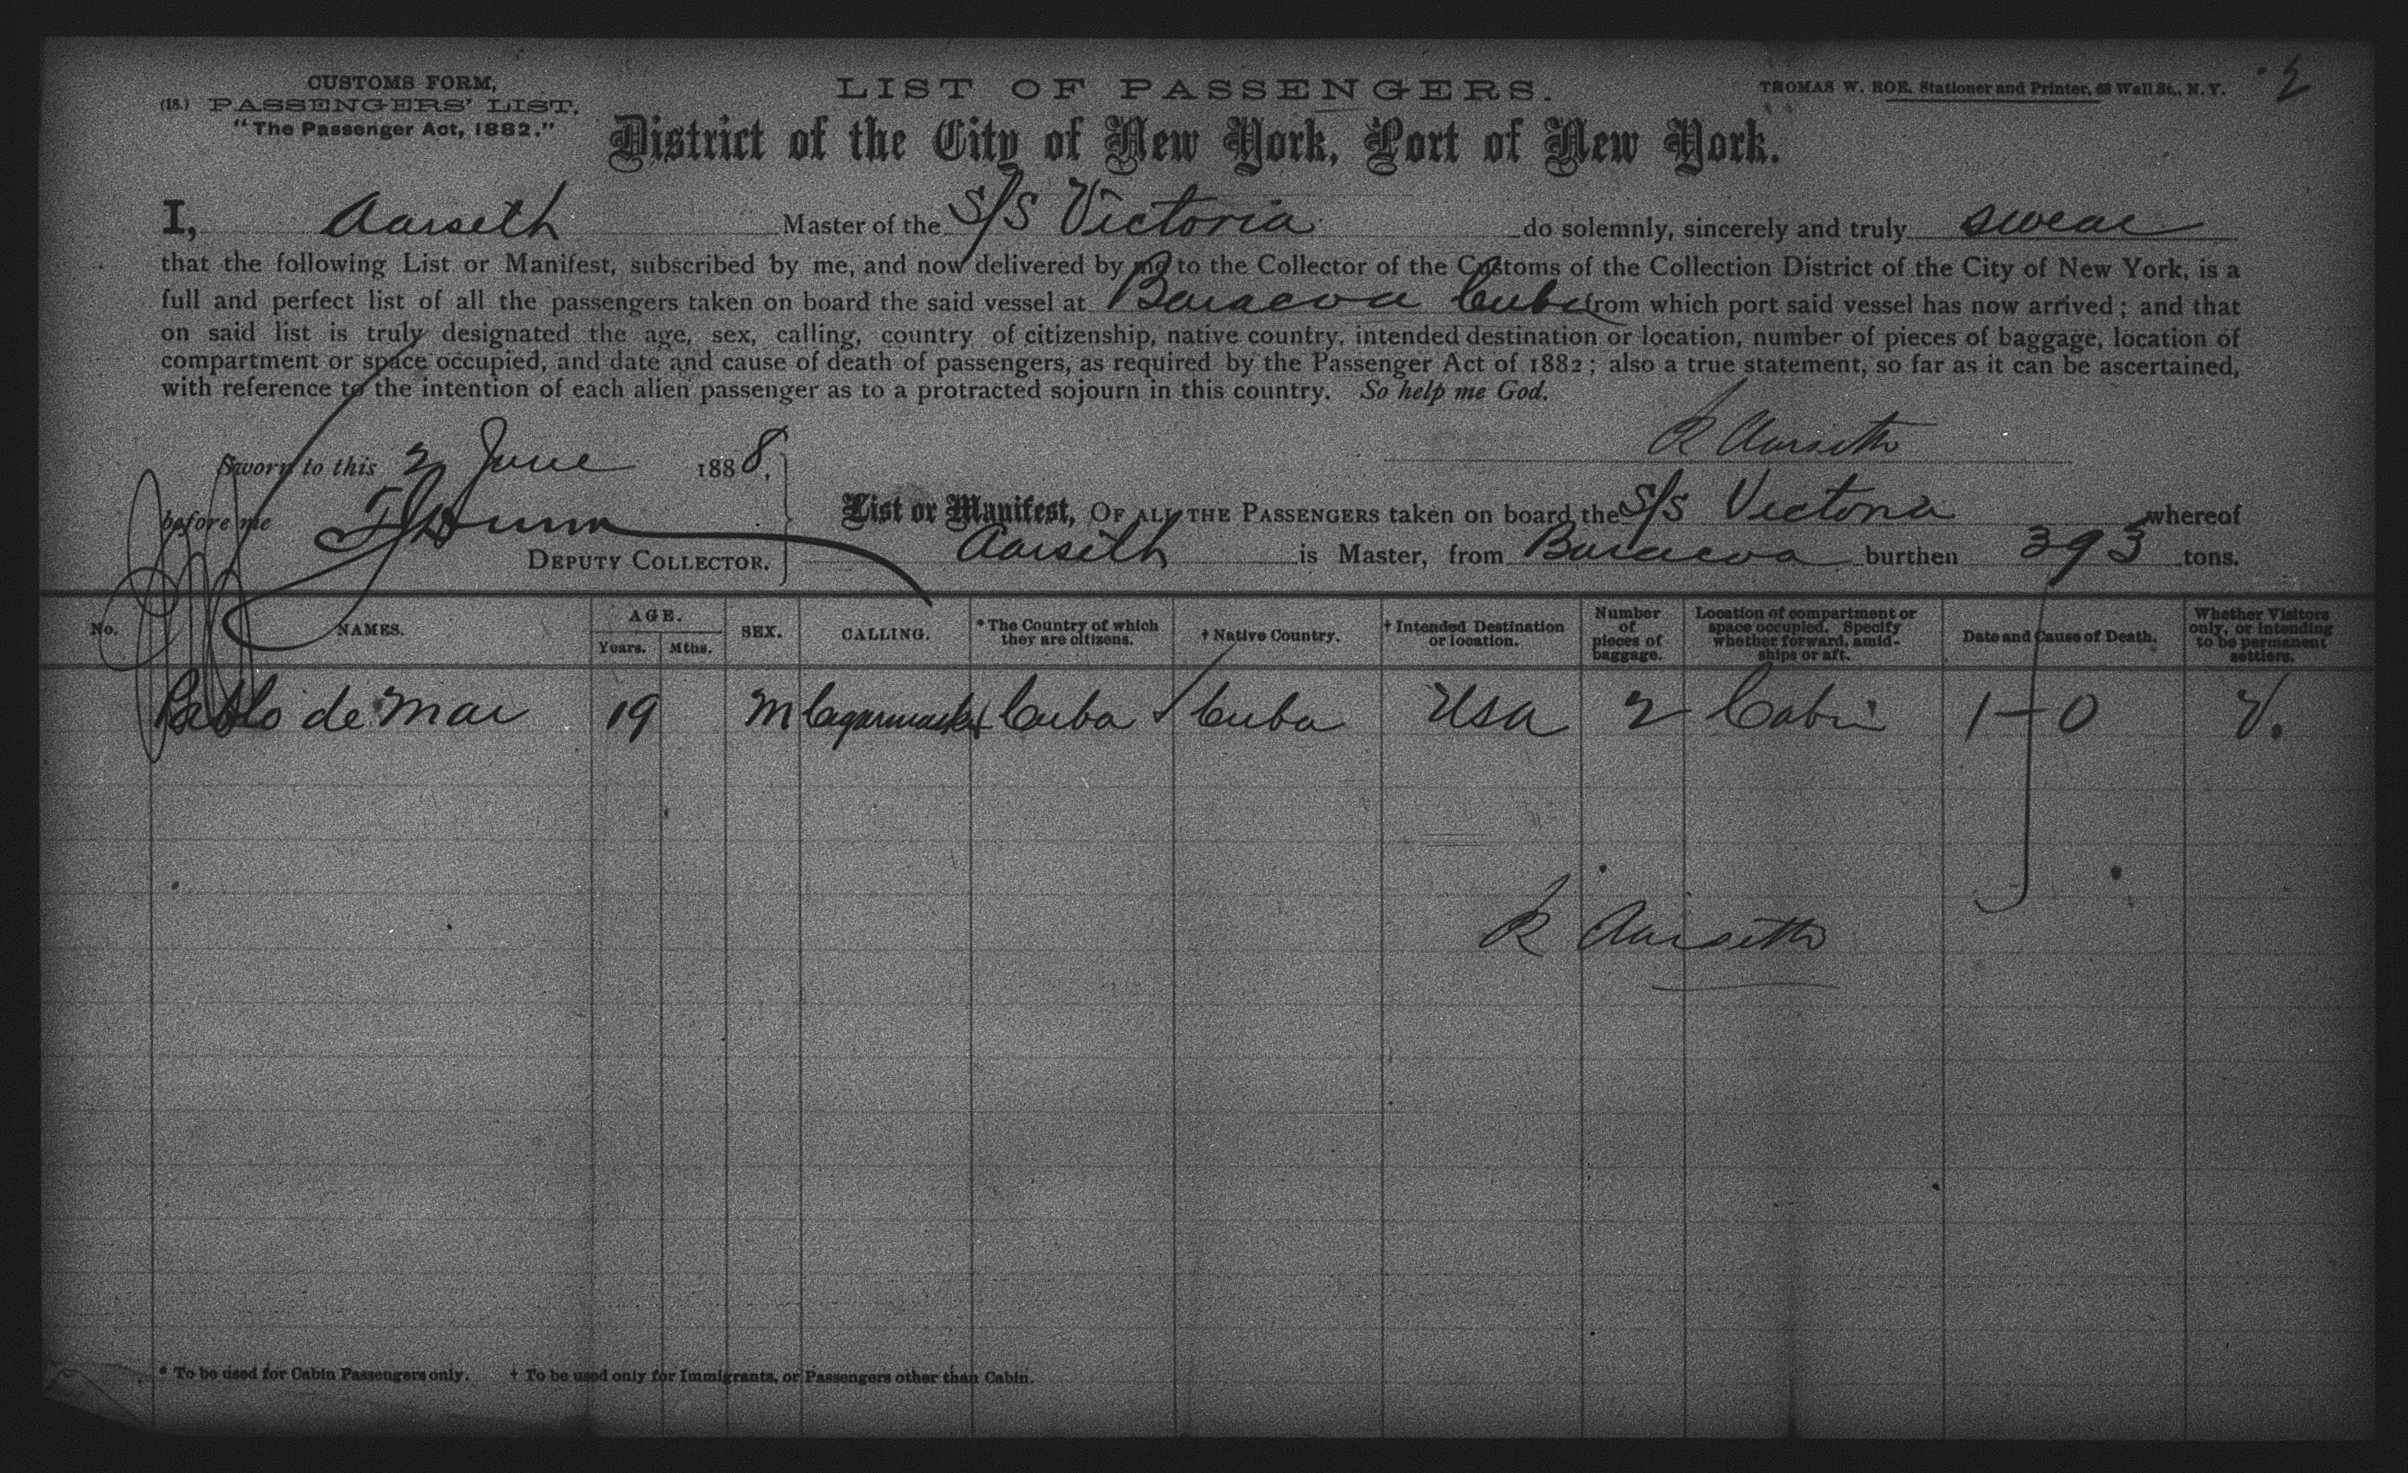 CUSTOMS FORM,
(18.) PASSENGERS' LIST.
"The Passenger Act, 1882."
LIST OF PASSENGERS.
THOMAS W. ROE, Stationer and Printer, 63 Wall St., N. Y.
2
District of the City of New York, Port of New York.
I, Aarseth Master of the S/S Victoria do solemnly, sincerely and truly swear
that the following List or Manifest, subscribed by me, and now delivered by me to the Collector of the Customs of the Collection District of the City of New York, is a
full and perfect list of all the passengers taken on board the said vessel at Baracoa Cuba from which port said vessel has now arrived; and that
on said list is truly designated the age, sex, calling, country of citizenship, native country, intended destination or location, number of pieces of baggage, location of
compartment or space occupied, and date and cause of death of passengers, as required by the Passenger Act of 1882; also a true statement, so far as it can be ascertained,
with reference to the intention of each alien passenger as to a protracted sojourn in this country. So help me God.
R Aarseth
Sworn to this 2 June 1888.
before me Dunn
DEPUTY COLLECTOR.
List or Manifest, OF ALL THE PASSENGERS taken on board the S/S Victoria whereof
Aarseth is Master, from Baracoa burthen 393 tons.
No. NAMES. AGE. Years. Mths. SEX. CALLING. * The Country of which they are citizens. † Native Country. † Intended Destination or location. Number of pieces of baggage. Location of compartment or space occupied. Specify whether forward, amidships or aft. Date and Cause of Death. Whether Visitors only, or intending to be permanent settlers.
Pablo de Mar 19 M Cuba Cuba USA 2 Cabin 1-0 V.
R Aarseth
* To be used for Cabin Passengers only. † To be used only for Immigrants, or Passengers other than Cabin.